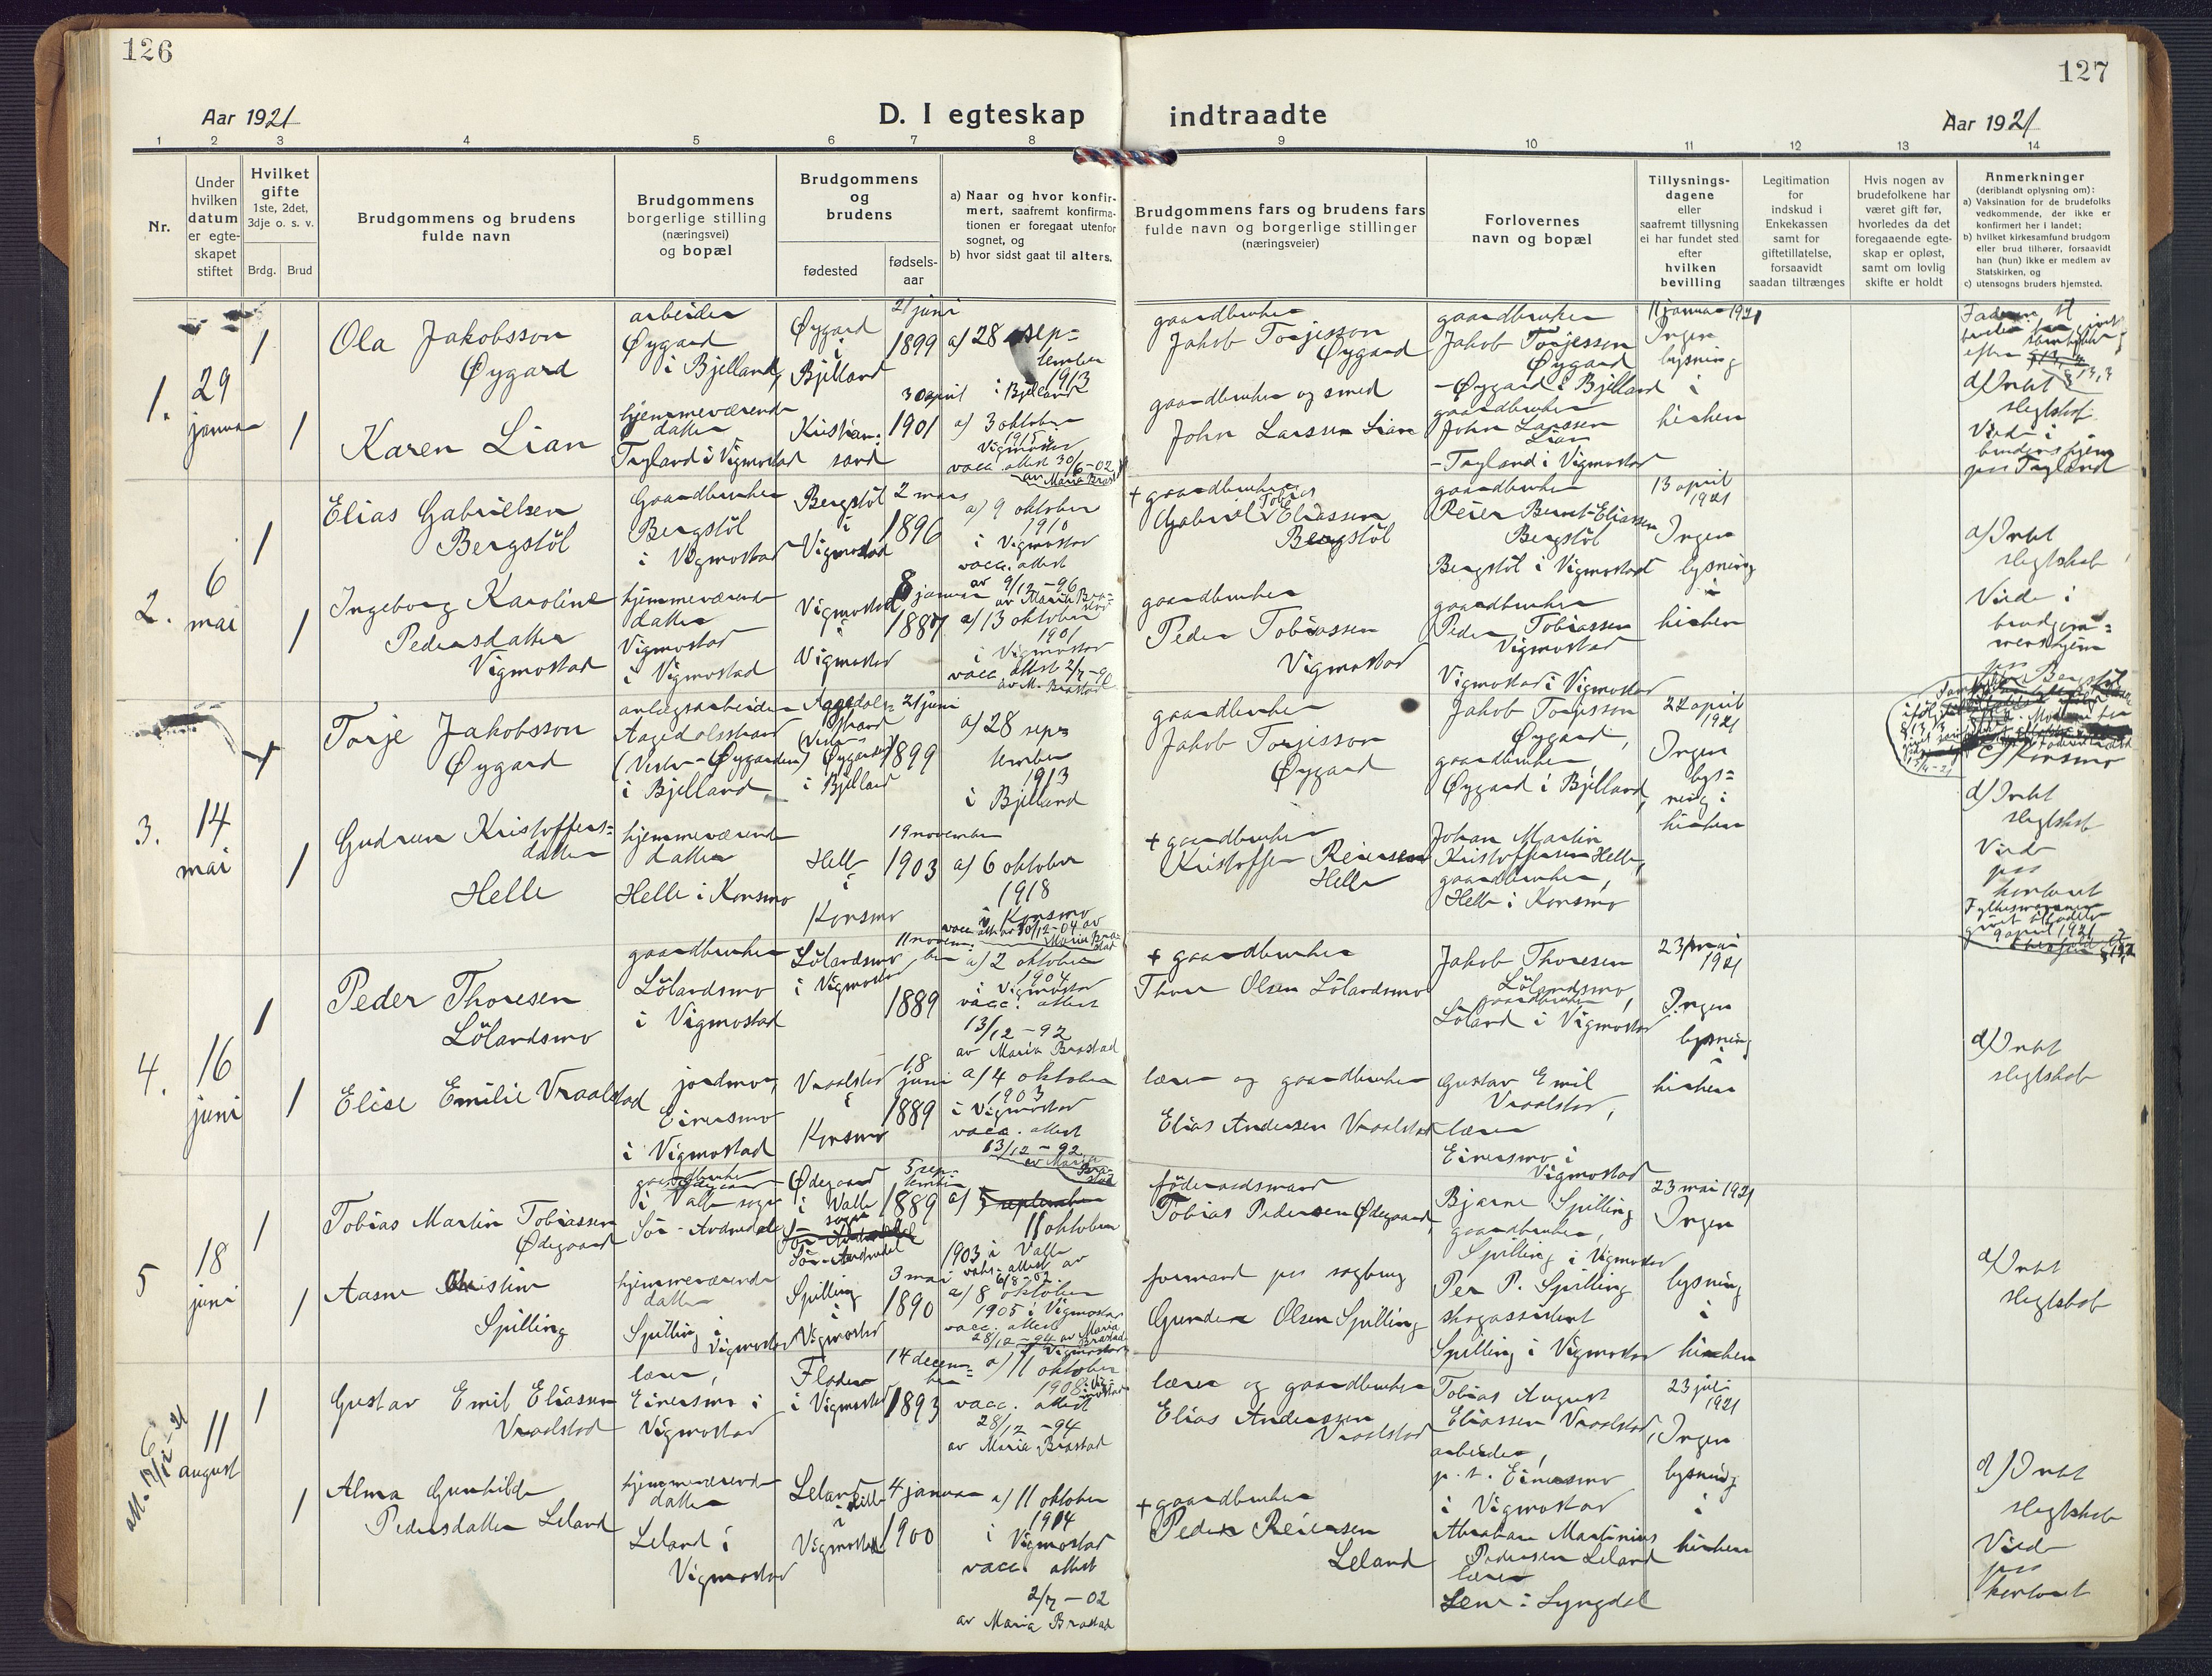 126
127
Aar 1921
D. I egteskap
indtraadte
Aar 1921
1
2
3
4
5
6
7
8
9
10
11
12
13
14
Nr.
Under
hvilken
datum
er egte-
skapet
stiftet
Hvilket
gifte
1ste, 2det,
3dje o. s. v.
Brdg.
Brud
Brudgommens og brudens
fulde navn
Brudgommens
borgerlige stilling
(næringsvei)
og bopæl
Brudgommens
og
brudens
fødested
fødsels-
aar
a) Naar og hvor konfir-
mert, saafremt konfirma-
tionen er foregaat utenfor
sognet, og
b) hvor sidst gaat til alters.
Brudgommens fars og brudens fars
fulde navn og borgerlige stillinger
(næringsveier)
Forlovernes
navn og bopæl
Tillysnings-
dagene
eller
saafremt tillysning
ei har fundet sted
efter
hvilken
bevilling
Legitimation
for
indskud i
Enkekassen
samt for
giftetillatelse,
forsaavidt
saadan tiltrænges
Hvis nogen av
brudefolkene har
været gift før,
hvorledes da det
foregaaende egte-
skap er opløst,
samt om lovlig
skifte er holdt
Anmerkninger
(deriblandt oplysning om):
a) Vaksination for de brudefolks
vedkommende, der ikke er
konfirmert her i landet;
b) hvilket kirkesamfund brudgom
eller brud tilhører, forsaavidt
han (hun) ikke er medlem av
Statskirken, og
c) utensogns bruders hjemsted.
1.
29
januar
1
Ola Jakobsson
Øygard
arbeider
Øygard
i Bjelland,
Øygard
i
Bjelland
21 juni
1899
a) 28 sep-
tember
1913
i Bjelland
gaardbruker
Jakob Torjesson
Øygard
gaardbruker
Jakob Torjesson
Øygard
- Øygard i Bjelland
11 januar 1921
Ingen
lysning
i
kirken
d) Intet
slegtskab
Vied i
brudens hjem
paa Tagland
1
Karen Lian
hjemmeværende
datter
Tagland i Vigmostad
Kristian-
sand
30 april
1901
a) 3 oktober
1915 i
Vigmostad
vacc. attest 30/6-02
av Maria Brastad
gaardbruker og smed
John Larssen Lian
gaardbruker
John Larssen
Lian
- Tagland i Vigmostad
2.
6
mai
1
Elias Gabrielsen
Bergstöl
Gaardbruker
Bergstöl
i Vigmostad
Bergstöl
i
Vigmostad
2 mars
1896
a) 9 oktober
1910
i Vigmostad
vacc. attest
av 9/12-96
av Maria Bra-
stad
+ gaardbruker
Gabriel Tobias Eliassen
Bergstöl
gaardbruker
Reier Bernt Eliassen
Bergstöl
Bergstöl i Vigmostad
13 april
1921
Ingen
lysning
i
kirken
d) Intet
slegtskab
Viede i
brudgom-
mens hjem
paa
Bergstöl
1
Ingeborg Karoline
Pedersdatter
Vigmostad
hjemmeværende
datter
Vigmostad
i Vigmostad
Vigmostad
i
Vigmostad
8 januar
1887
a) 13 oktober
1901
i Vigmostad
vacc. attest 2/7-90
av M. Brastad
gaardbruker
Peder Tobiassen
Vigmostad
gaardbruker
Peder Tobiassen
Vigmostad
Vigmostad i Vigmostad
3.
14
mai
1
Torje Jakobsson
Øygard
anlægsarbeider
Aagedalsstrand
(Vester-Øygarden)
i Bjelland
Aagedals-
strand
(Vester-
Øygarden)
i Bjelland
21 juni
1899
a) 28 sep-
tember
1913
i Bjelland
gaardbruker
Jakob Torjesson
Øygard
Jakob Torjesson
Øygard,
gaardbruker,
Øygard i Bjelland,
22 april
1921
Ingen
lys-
ning i
kirken
c) Konsmo
d) Intet
slegtskab
Vied
paa
kontoret
Fylkesmannen
givet tilladelse
9 april 1921
1
Gudrun Kristoffers-
datter
Helle
hjemmeværende
datter
Helle i Konsmo
Helle
i
Konsmo
19 november
1903
a) 6 oktober
1918
i Konsmo
vacc. attest av 30/12-04 av
Maria Bra-
stad
+ gaardbruker
Kristoffer Reiersen
Helle
Johan Martin
Kristoffersen Helle,
gaardbruker,
Helle i Konsmo
4.
16
juni
1
Peder Thoresen
Lölandsmo
gaardbruker
Lölandsmo
i Vigmostad
Lölandsmo
i Vigmostad
11 novem-
ber
1889
a) 2 oktober
1904
i Vigmostad
vacc. attest
13/12-92
av Maria Brastad
+ gaardbruker
Thore Olsen Lölandsmo
Jakob Thoresen
Lölandsmo,
gaardbruker
Löland i Vigmostad
23 mai
1921
Ingen
lysning
i
kirken
d) Intet
slegtskab
1
Elise Emilie Vraalstad
jordmor,
Einersmo
i Vigmostad
Vraalstad
i
Konsmo
18
juni
1889
a) 4 oktober
1903
i Vigmostad
vacc. attest
13/12-92
av Maria
Bra-
stad
lærer og gaardbruker
Elias Andersen Vraalstad
Gustav Emil
Vraalstad,
lærer
Einersmo i
Vigmostad
5
18
juni
1
Tobias Martin Tobiassen
Ødegaard
gaardbruker
i Valle sogn
Sör-Audnedal
Ødegaard
i Valle
sogn
Sör-Audnedal
5 sep-
tember
1889
a) 5 september
11 oktober
1903 i Valle
vaks. attest av
6/8-02.
föderaadsmand
Tobias Pedersen Ødegaard,
Bjarne Spilling
gaardbruker,
Spilling i Vigmostad
23 mai 1921
Ingen
lysning
i
kirken
d) Intet
slegtskab
1
Aasne Kristine
Spilling
hjemmeværende
datter
Spilling i
Vigmostad
Spilling
i
Vigmostad
3 mai
1890
a) 8 oktober
1905 i Vigmostad
vacc. attest
28/12-94 av Maria
Brastad
Vigmostad
formand paa sagbrug
Gunder Olsen Spilling
Per P. Spilling
skogassistent
Spilling i Vigmostad
att. 19/12-21
11
august
1
Gustav Emil Eliassen
Vraalstad
lærer,
Einersmo i
Vigmostad
Flader
i Vigmostad
14 decem-
ber
1893
a) 11 oktober
1908 i Vig-
mostad
vacc. attest
28/12-94
av Maria Brastad
lærer og gaardbruker
Elias Anderssen
Vraalstad
Tobias August
Eliassen Vraalstad,
arbeider,
p. t. Einersmo
i Vigmostad
23 juli
1921
Ingen
lysning
i
kirken
d) Intet
slegtskab
Vied
paa
kontoret
1
Alma Gunhilde
Pedersdatter Leland
hjemmeværende
datter
Leland i
Vigmostad
Leland
i
Vigmostad
4 januar
1900
a) 11 oktober
1914
i Vigmostad
vacc. attest
2/7-02
av Maria Brastad
+ gaardbruker
Peder Reiersen
Leland
Abraham Martinius
Pedersen Leland
lærer
Lene i Lyngdal